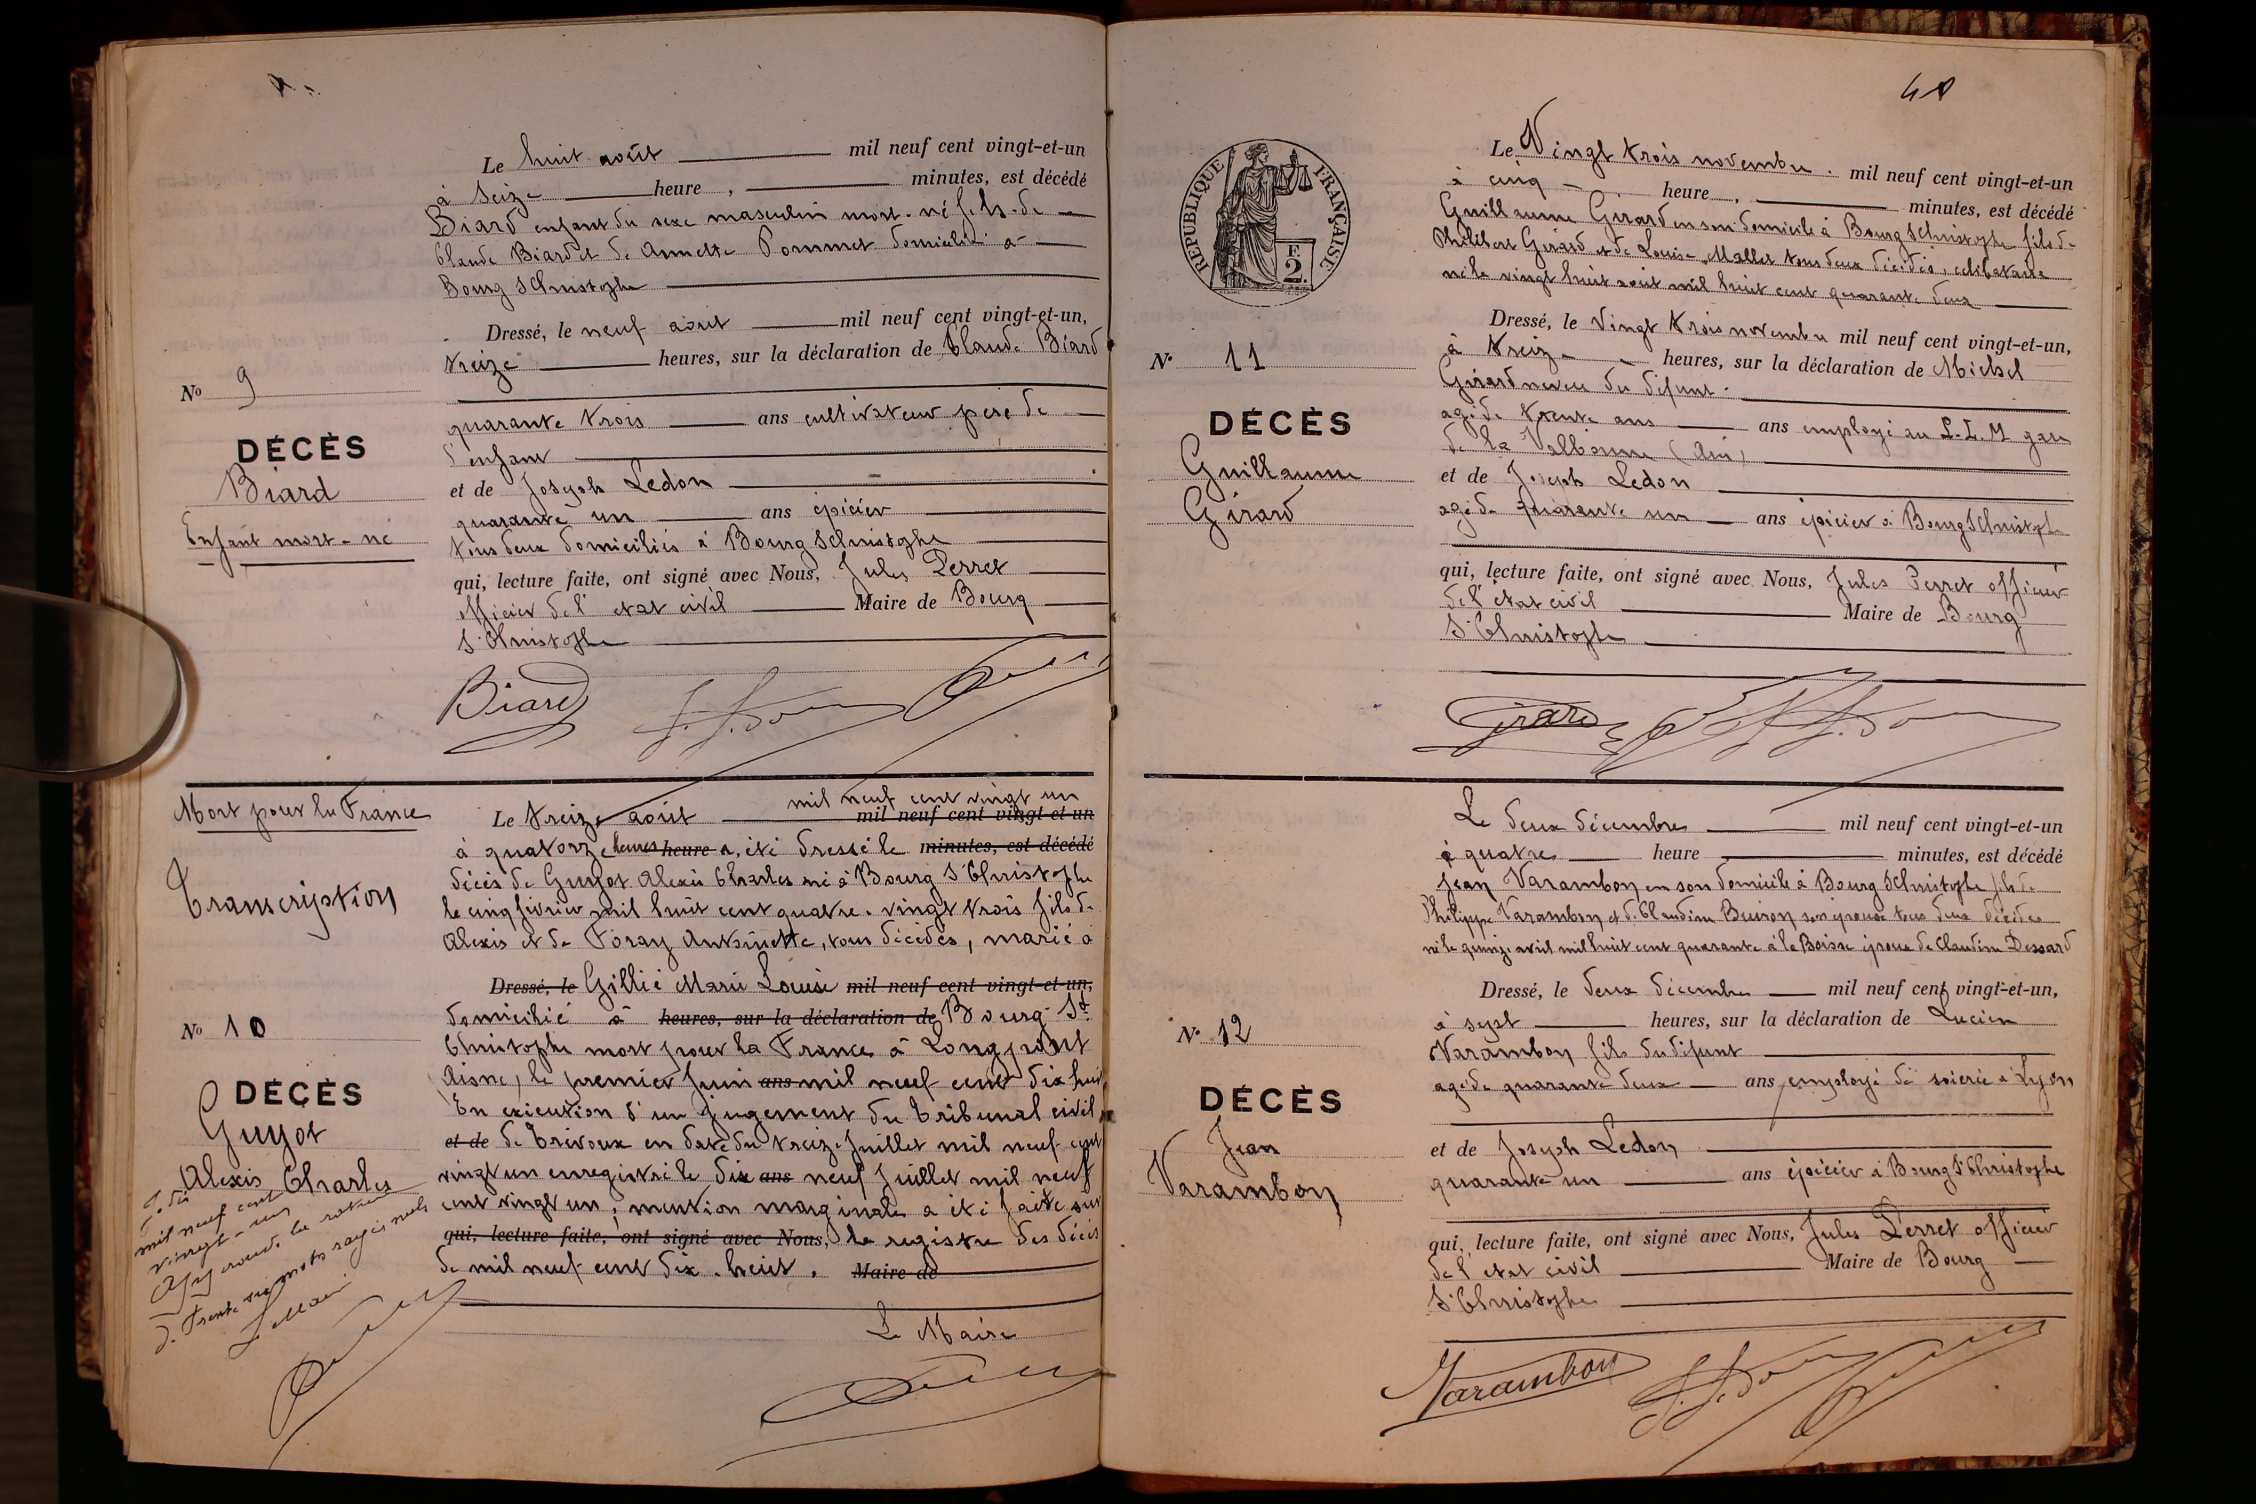 Le huit août mil neuf cent vingt-et-un
à seize heure , minutes, est décédé
Biard enfant du sexe masculin mort-né fils de
Claude Biard et de Annette Pommet domicilié à
Bourg St Christophe
Dressé, le neuf août mil neuf cent vingt-et-un,
treize heures, sur la déclaration de Claude Biard
No 9
DÉCÈS
Biard
Enfant mort-né
quarante trois ans cultivateur père de
l'enfant
et de Joseph Ledon
quarante un ans épicier
tous deux domiciliés à Bourg St Christophe
qui, lecture faite, ont signé avec Nous, Jules Perret
officier de l'état civil Maire de Bourg
St Christophe
Biard
Mort pour la France
Transcription
No 10
DÉCÈS
Guyot
Alexis Charles
mil neuf cent
vingt-un
Approuvé la rature
de trente six mots rayés nuls
Le Maire
mil neuf cent vingt un
Le treize août mil neuf cent vingt-et-un
à quatorze heures heure a, été dressé le minutes, est décédé
décès de Guyot Alexis Charles né à Bourg St Christophe
le cinq février mil huit cent quatre-vingt trois fils de
Alexis et de Foray Antoinette, tous décédés, marié à
Dressé, le Gillié Marie Louise mil neuf cent vingt-et-un,
domicilié à heures, sur la déclaration de Bourg-St
Christophe mort pour la France à Longpont
Aisne, le premier juin ans mil neuf cent dix huit
En exécution d'un jugement du tribunal civil
et de de Trévoux en date du treize juillet mil neuf cent
vingt un enregistré le dix ans neuf juillet mil neuf
cent vingt un, mention marginale a été faite sur
qui, lecture faite, ont signé avec Nous, le registre des décès
de mil neuf cent dix-huit. Maire de
Le Maire
48
RÉPUBLIQUE FRANÇAISE
F.
2.
No 11
DÉCÈS
Guillaume
Girard
Le Vingt trois novembre mil neuf cent vingt-et-un
à cinq heure , minutes, est décédé
Guillaume Girard en son domicile à Bourg St Christophe fils de
Philibert Girard et de Louise Mallet tous deux décédés, célibataire
né le vingt huit août mil huit cent quarante deux
Dressé, le vingt trois novembre mil neuf cent vingt-et-un,
à treize heures, sur la déclaration de Michel
Girard neveu du défunt
agé de trente ans ans employé au P.L.M gare
de la Valbonne (Ain)
et de Joseph Ledon
agé de quarante un ans épicier à Bourg St Christophe
qui, lecture faite, ont signé avec Nous, Jules Perret officier
de l'état civil Maire de Bourg
St Christophe
Girard
No 12
DÉCÈS
Jean
Varambon
Le deux décembre mil neuf cent vingt-et-un
à quatre heure minutes, est décédé
Jean Varambon en son domicile à Bourg St Christophe fils de
Philippe Varambon et de Claudine Buiron son épouse tous deux décédés
né le quinze avril mil huit cent quarante à la Boisse époux de Claudine Dessard
Dressé, le deux décembre mil neuf cent vingt-et-un,
à sept heures, sur la déclaration de Lucien
Varambon fils du défunt
agé de quarante deux ans employé de soierie à Lyon
et de Joseph Ledon
quarante un ans épicier à Bourg St Christophe
qui, lecture faite, ont signé avec Nous, Jules Perret officier
de l'état civil Maire de Bourg
St Christophe
Varambon